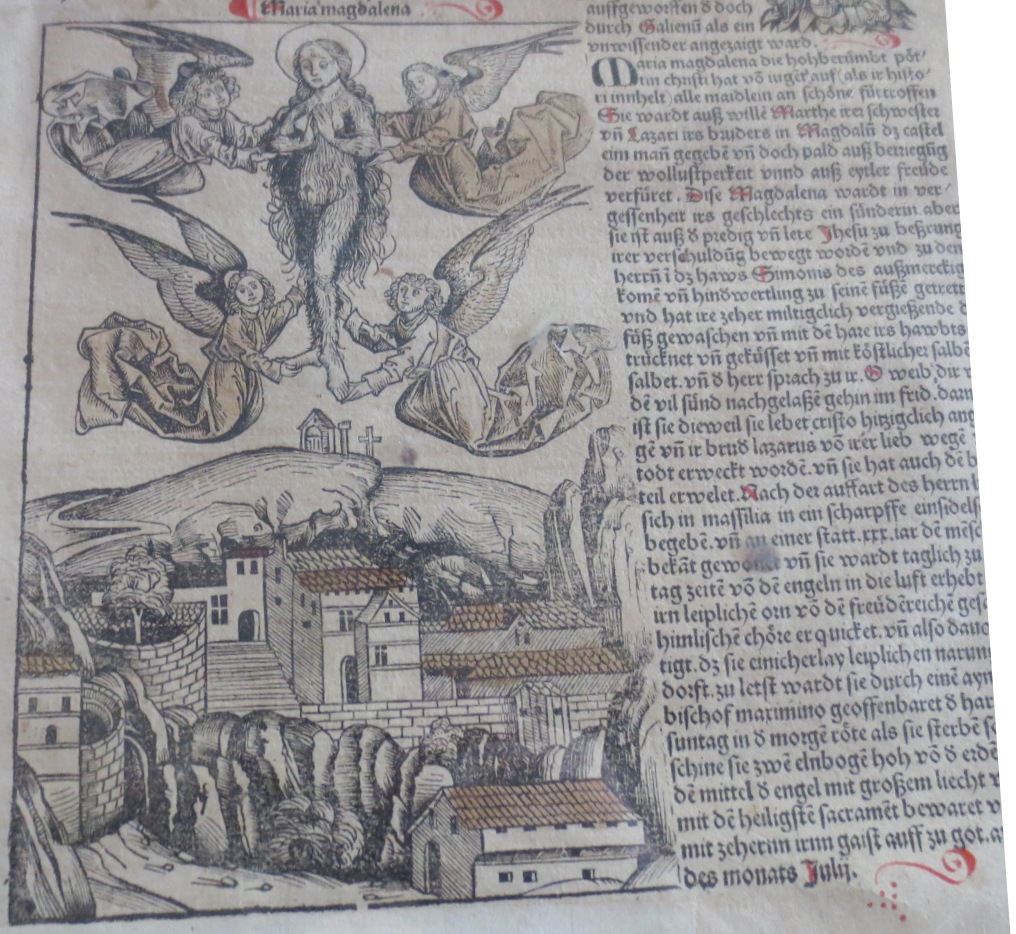 Maria magdalena
auffgeworffen d̕ doch
durch Galienū als ein
vnwissender angezaigt ward.
Maria magdalena die hohberümbt pöt/
tin christi hat vō iugēt auf (als ir histo-
ri innhelt) alle maidlein an schöne fürtroffen
Sie wardt auß willē Marthe irer schwester
vñ Lazari irs bruders in Magdalū dz castel
eim mañ gegebē vñ doch pald auß beriegūg
der wollustperkeit vnnd auß eytler freude
verfüret. Dise Magdalena wardt in ver/
gessenheit irs geschlechts ein sünderin. aber
sie ist auß d̕ predig vñ lere Jhesu zu beßrung
irer verschuldūg bewegt wordē vnd zu dem
herrñ i dz haws Simonis des außmerckig
komē vñ hindwertling zu seinē füßē getrett
vnd hat ire zeher miltigclich vergießende d
füß gewaschen vñ mit dē hare irs hawbts
trücknet vñ geküsset vñ mit köstlicher salbe
salbet. vñ d̕ herr sprach zu ir. O weib dir
dē vil sünd nachgelaßē gehin im frid. darn
ist sie dieweil sie lebet cristo hitzigclich ang
gē vñ ir brud̕ lazarus vō irer lieb wegē
todt erweckt wordē. vñ sie hat auch dē b
teil erwelet. Nach der auffart des herrn
sich in massilia in ein scharpffe einsidels
begebē. vñ an einer statt .xxx. iar dē mēsc
bekāt gewo vñ sie wardt taglich zu
tag zeitē vō dē engeln in die luft erhebt
irn leiplichē orn vō dē freüdēreichē ges
himlischē chöre erquicket. vñ also dauc
tigt. dz sie einicherlay leiplichen narun
dorft. zu letst wardt sie durch einē ayn
bischof maximino geoffenbaret d̕ har
suntag in d̕ morgē röte als sie sterbē so
schine sie zwē elnbogē hoh vō d̕ erdē
dē mittel d̕ engel mit großem liecht v
mit dē heiligstē sacramēt bewaret v
mit zehernn irnn gaist auff zu got. a
des monats Julij.